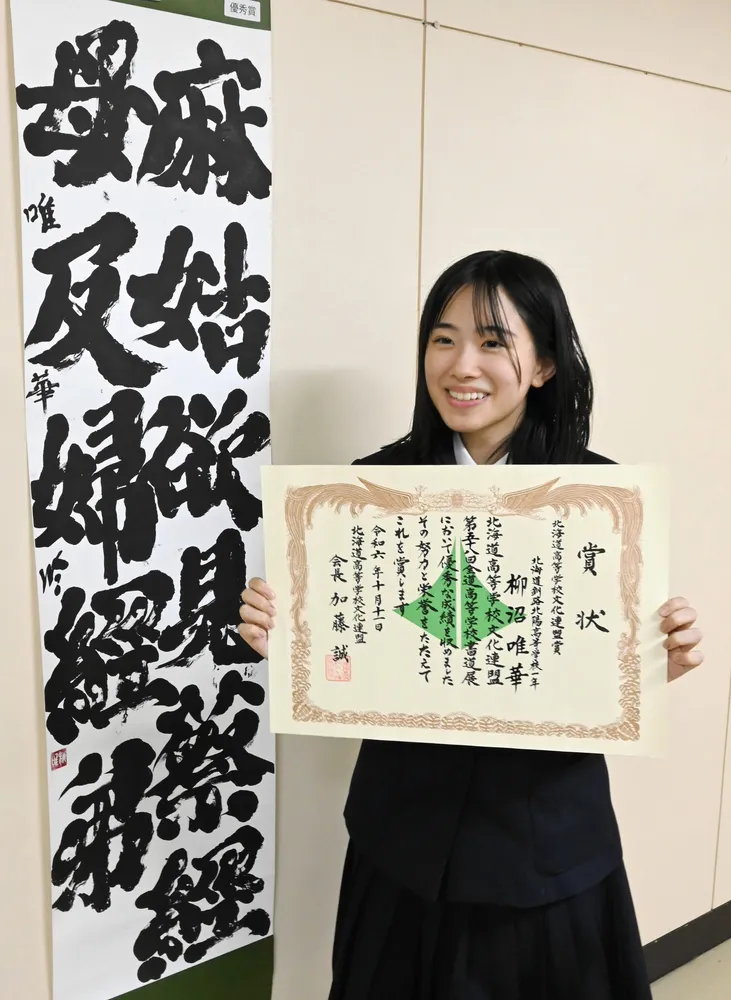 優秀賞
麻姑欲見蔡經
母及婦經弟
唯華
賞状
北海道高等学校文化連盟賞
北海道釧路北陽高等学校一年
柳沼唯華
北海道高等学校文化連盟
第五十八回全道高等学校書道展
において優秀な成績を収めました
その努力と栄誉をたたえて
これを賞します
令和六年十月十一日
北海道高等学校文化連盟
会長 加藤 誠